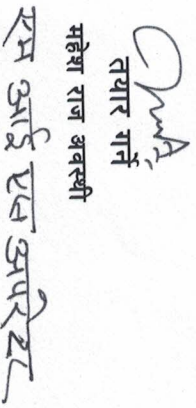 तयार गर्ने
महेश राज अवस्थी
एम आई एस अपरेटर